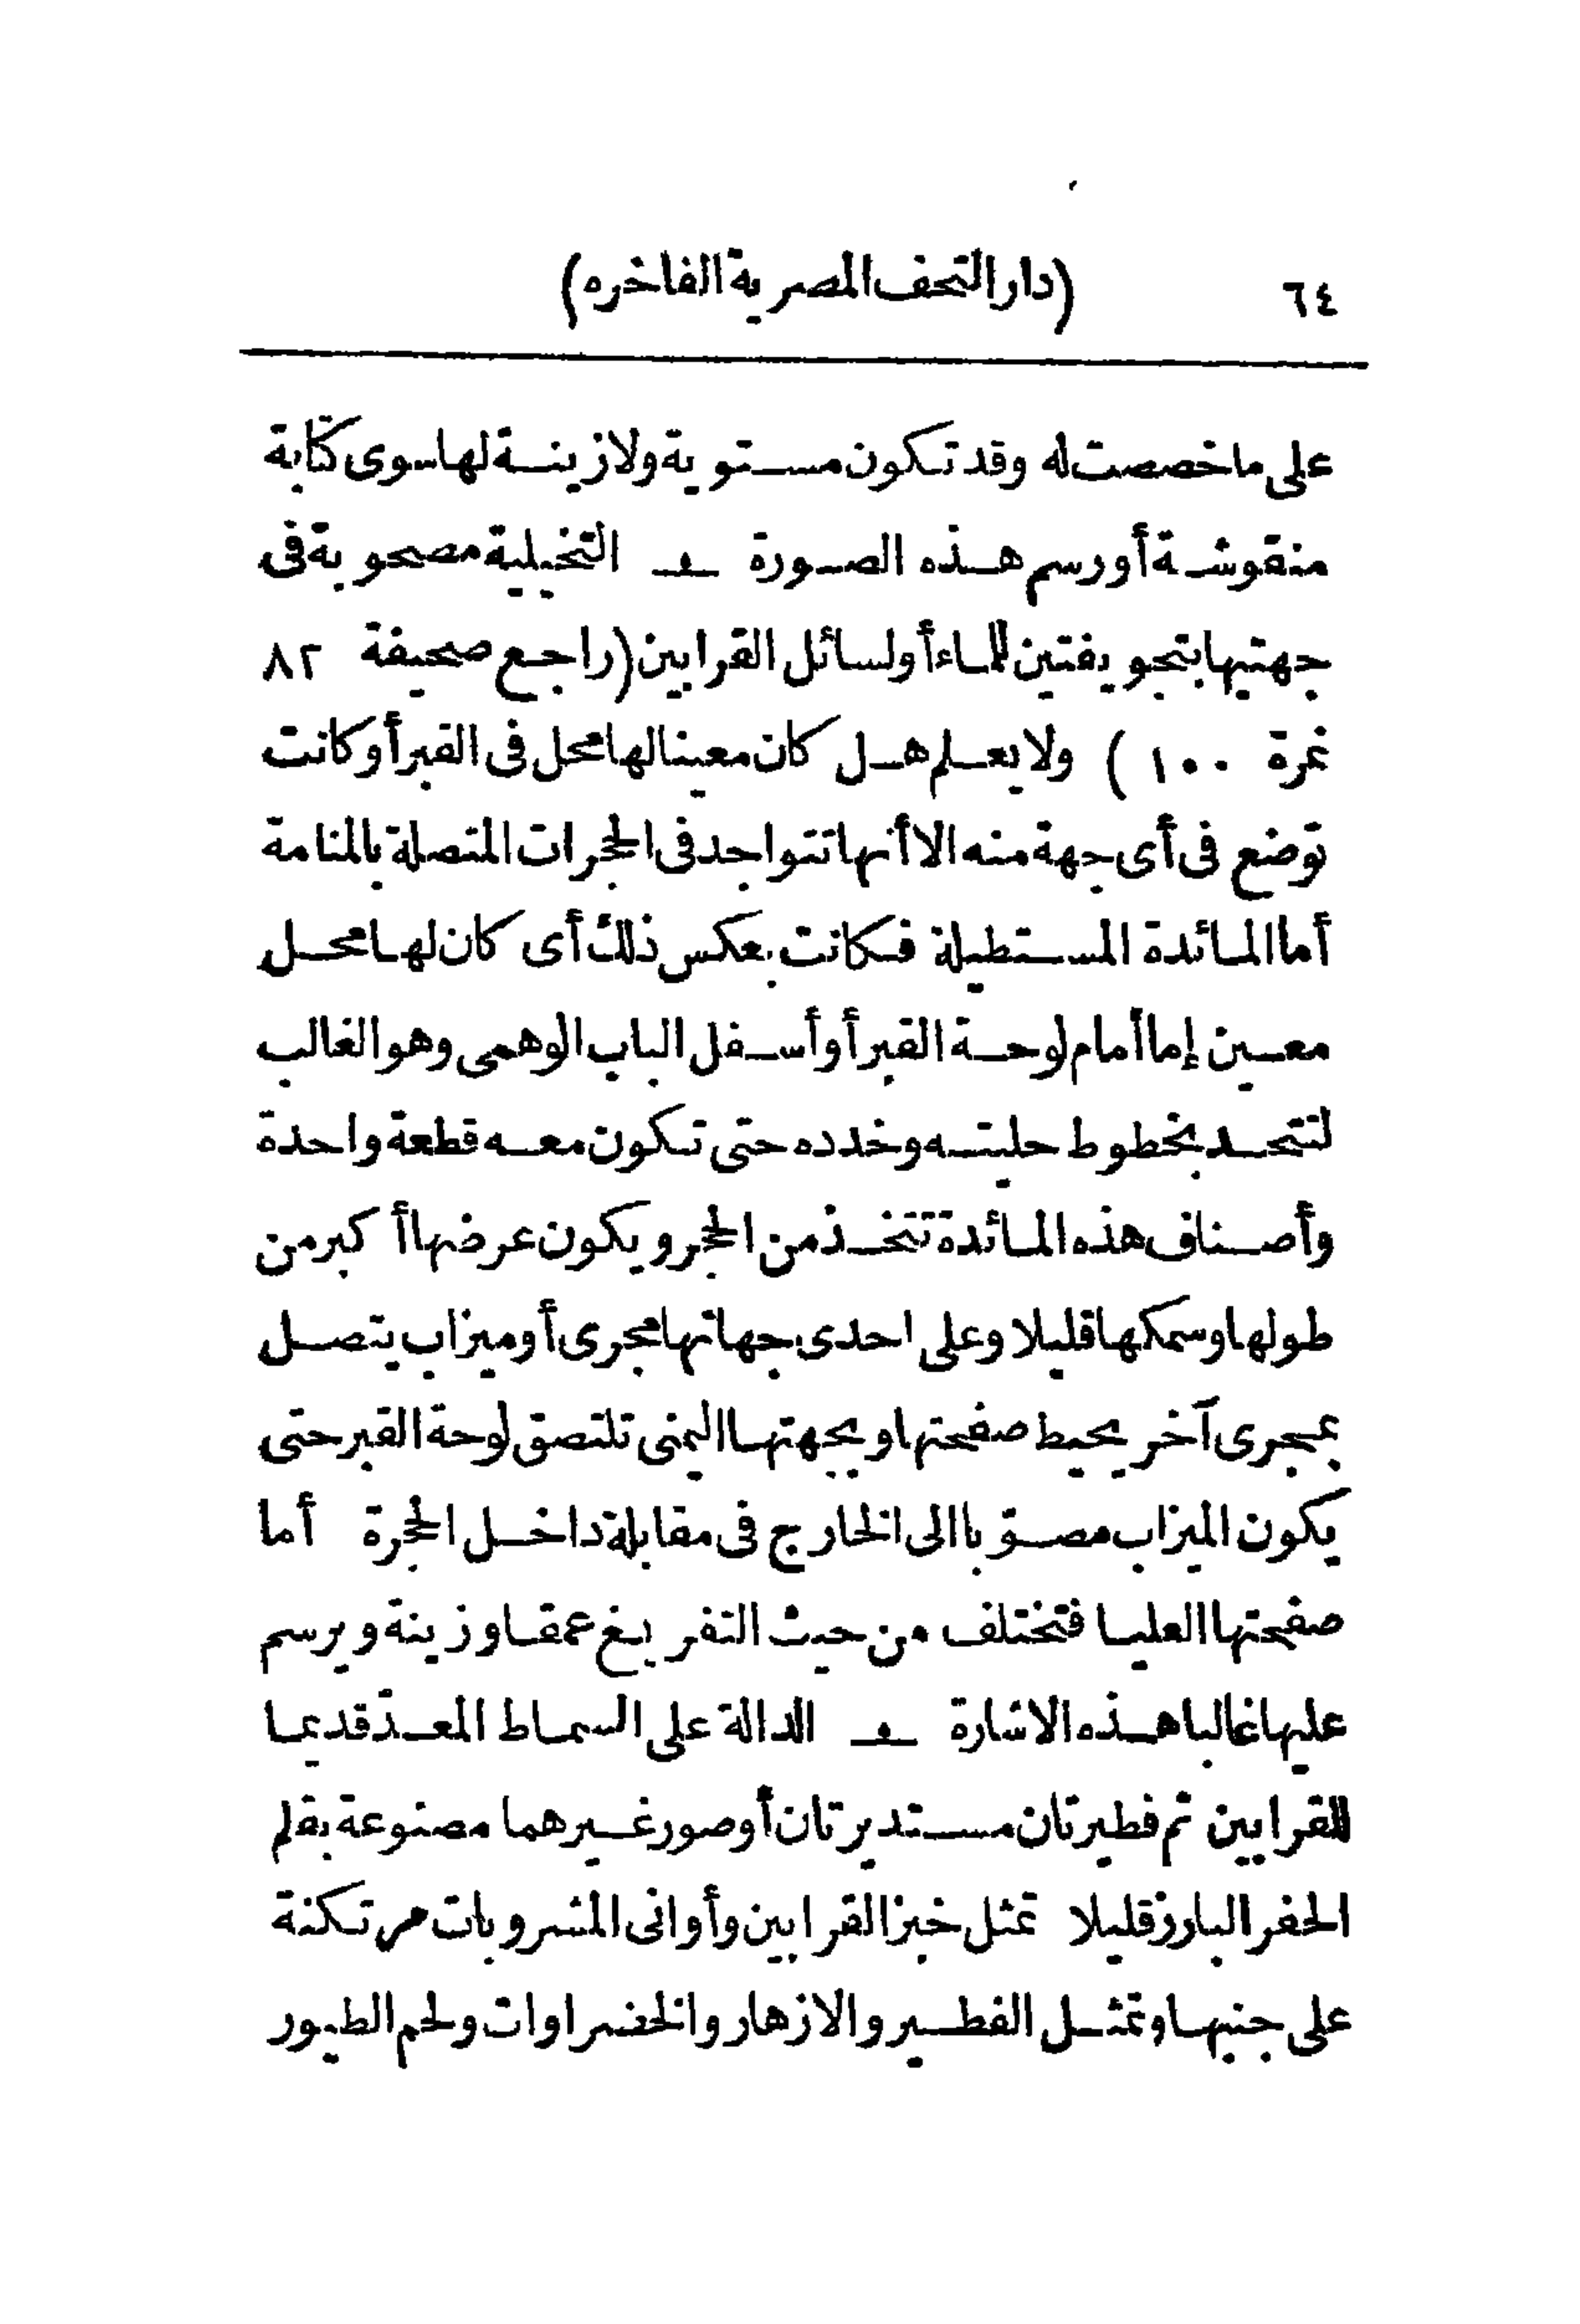 ٦٤ (دار التحف المصرية الفاخره)
على ما خصصت له وقد تكون مستوية ولا زينة لها سوى كتابة
منقوشة أو رسم هذه الصورة التخيلية مصحوبة فى
جهتيها بتجويفتين للماء أو لسائل القرابين (راجع صحيفة ٨٢
نمرة ١٠٠) ولا يعلم هل كان معينا لها محل فى القبر أو كانت
توضع فى أى جهة منه الا أنها تتواجد فى الحجرات المتصلة بالمنامة
أما المائدة المستطيلة فكانت بعكس ذلك أى كان لها محل
معين إما أمام لوحة القبر أو أسفل الباب الوهمى وهو الغالب
لتتحد بخطوط حليته وخدده حتى تكون معه قطعة واحدة
وأصناف هذه المائدة تتخذ من الحجر ويكون عرضها أكبر من
طولها وسمكها قليلا وعلى احدى جهاتها مجرى أو ميزاب يتصل
بمجرى آخر يحيط صفحتها وبجهتها اليمنى تلتصق لوحة القبر حتى
يكون الميزاب مصوّبا الى الخارج فى مقابلة داخل الحجرة أما
صفحتها العليا فتختلف من حيث التفريغ عمقا وزينة ويرسم
عليها غالبا هذه الاشارة الدالة على السماط المعدّ قديما
للقرابين ثم فطيرتان مستديرتان أو صور غيرهما مصنوعة بقلم
الحفر البارز قليلا تمثل خبز القرابين وأوانى المشروبات مرتكنة
على جنبها وتمثل الفطير والازهار والخضراوات ولحم الطيور